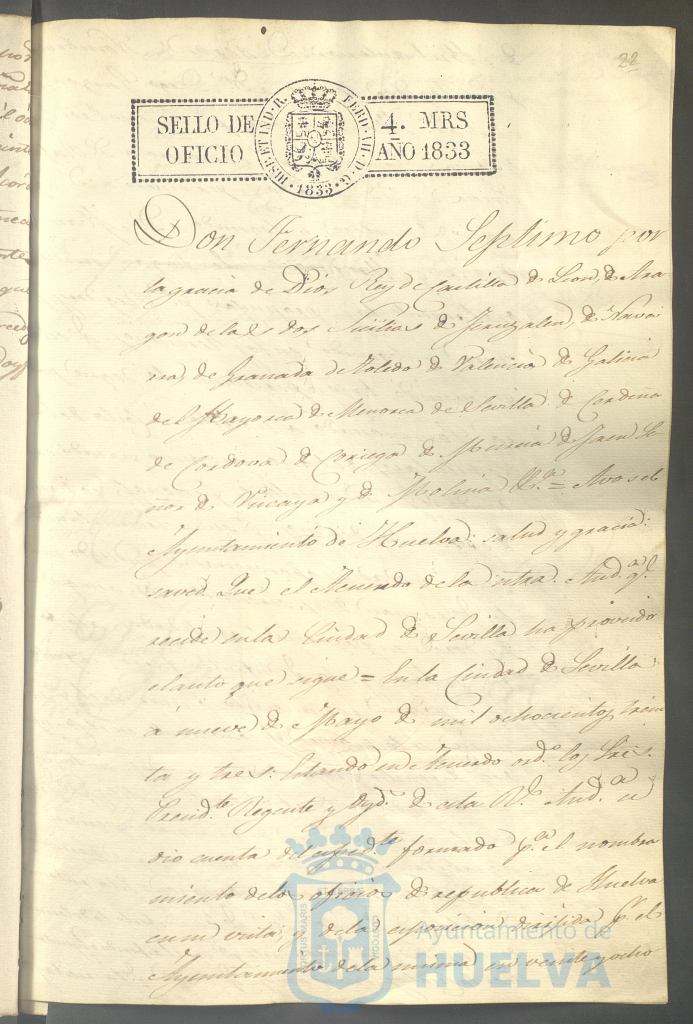 22
SELLO DE OFICIO
HISP. ET IND. R. FERD. VII. D. G.
1833
4. MRS
AÑO 1833
Don Fernando Septimo por
la gracia de Dios Rey de Castilla de Leon, de Ara
gon de las dos Sicilias de Jeruzalen, de Nava
rra, de Granada de Toledo de Valencia de Galicia
de Mayorca de Menorca de Sevilla de Cerdeña
de Cordova de Corcega de Murcia de Jaen Se
ñor de Vizcaya y de Molina &.ª = A vos el
Ayuntamiento de Huelva: salud y gracia:
saved. Que el Acuerdo de la ntra. Aud.ª q.e
recide en la Ciudad de Sevilla ha proveido
el auto que sigue = En la Ciudad de Sevilla
á nueve de Mayo de mil ochocientos trein
ta y tres: Estando en Acuerdo ord.º los Sres.
Presid.te Regente y Oyd.s de esta R.l Aud.ª se
dio cuenta del esped.te formado p.ª el nombra
miento de los oficios de republica de Huelva
y de la esposicion dirijida p.r el
Ayuntamiento de la misma en veinte y ocho
Ayuntamiento de
HUELVA